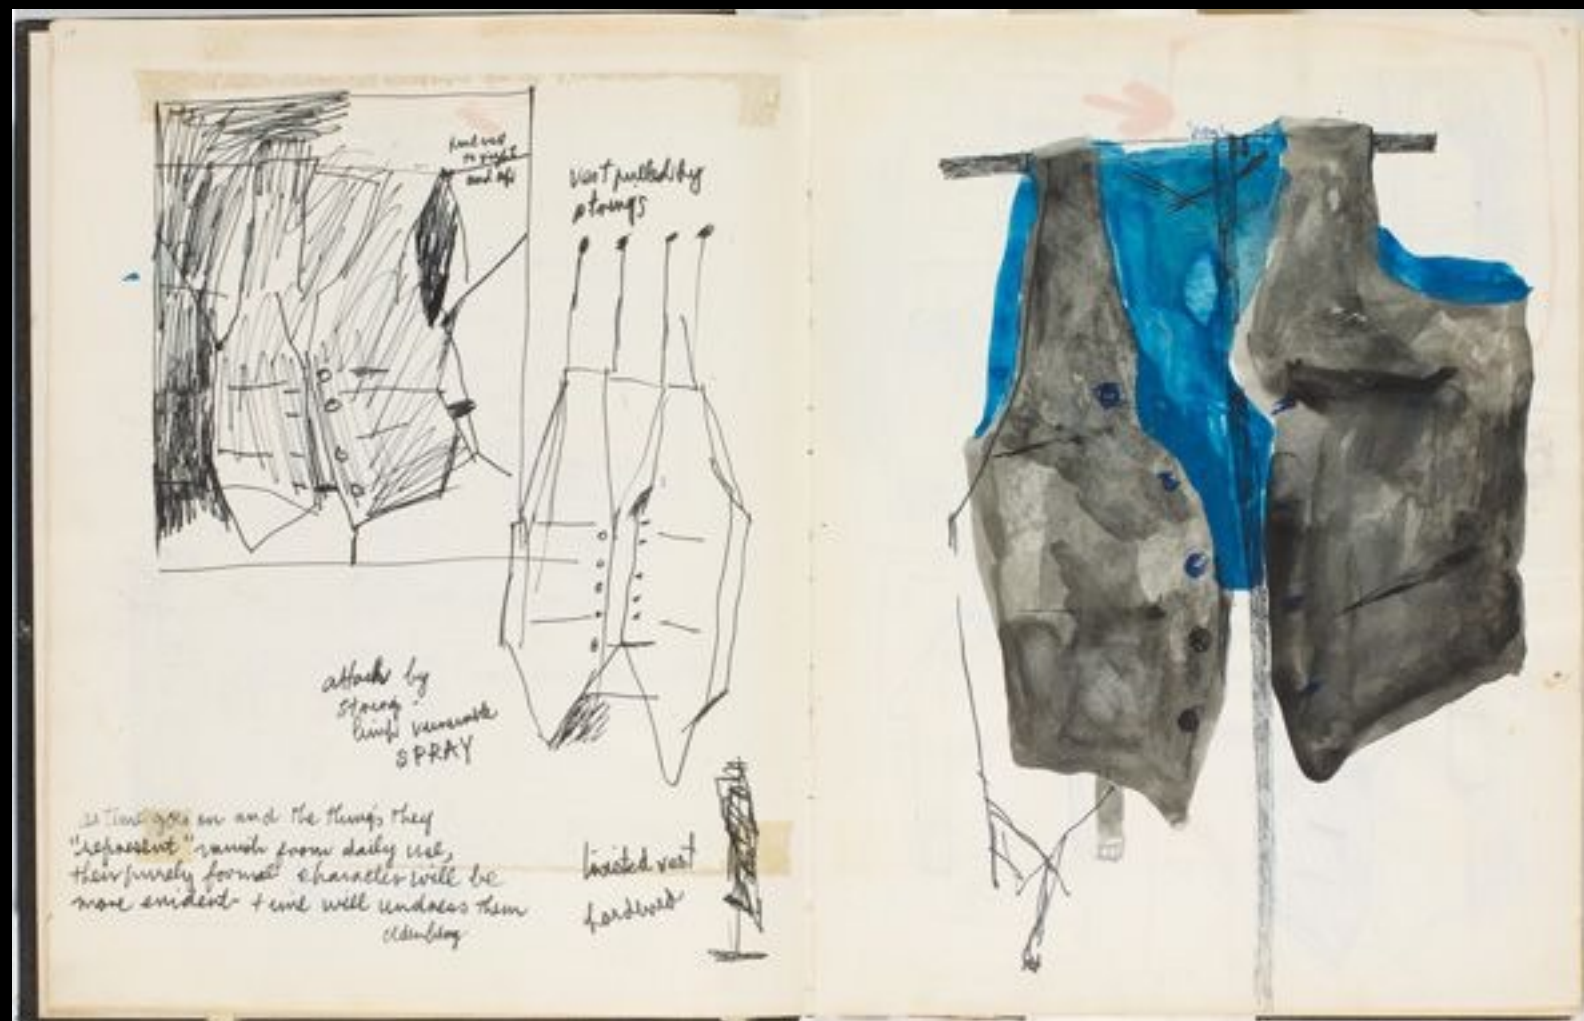 to right
and up
vest pulled by
strings
attach by
string -
limp
SPRAY
as time goes on and the things they
"represent" vanish from daily use,
their purely formal character will be
more evident - time will undress them
Oldenburg
twisted vest